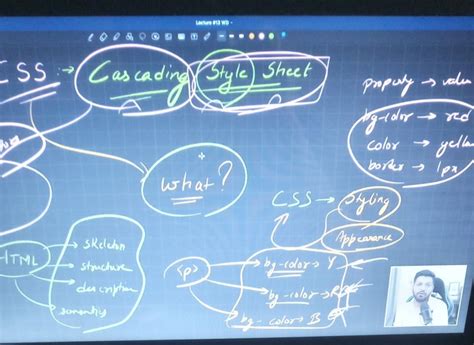 Lecture #13 WD
CSS :→ Cascading Style Sheet
property → value
bg-color → red
color → yellow
border → 1px
what?
CSS → Styling
Appearance
HTML → skeleton
→ structure
→ description
bg-color → Y
bg-color → R
bg-color → B